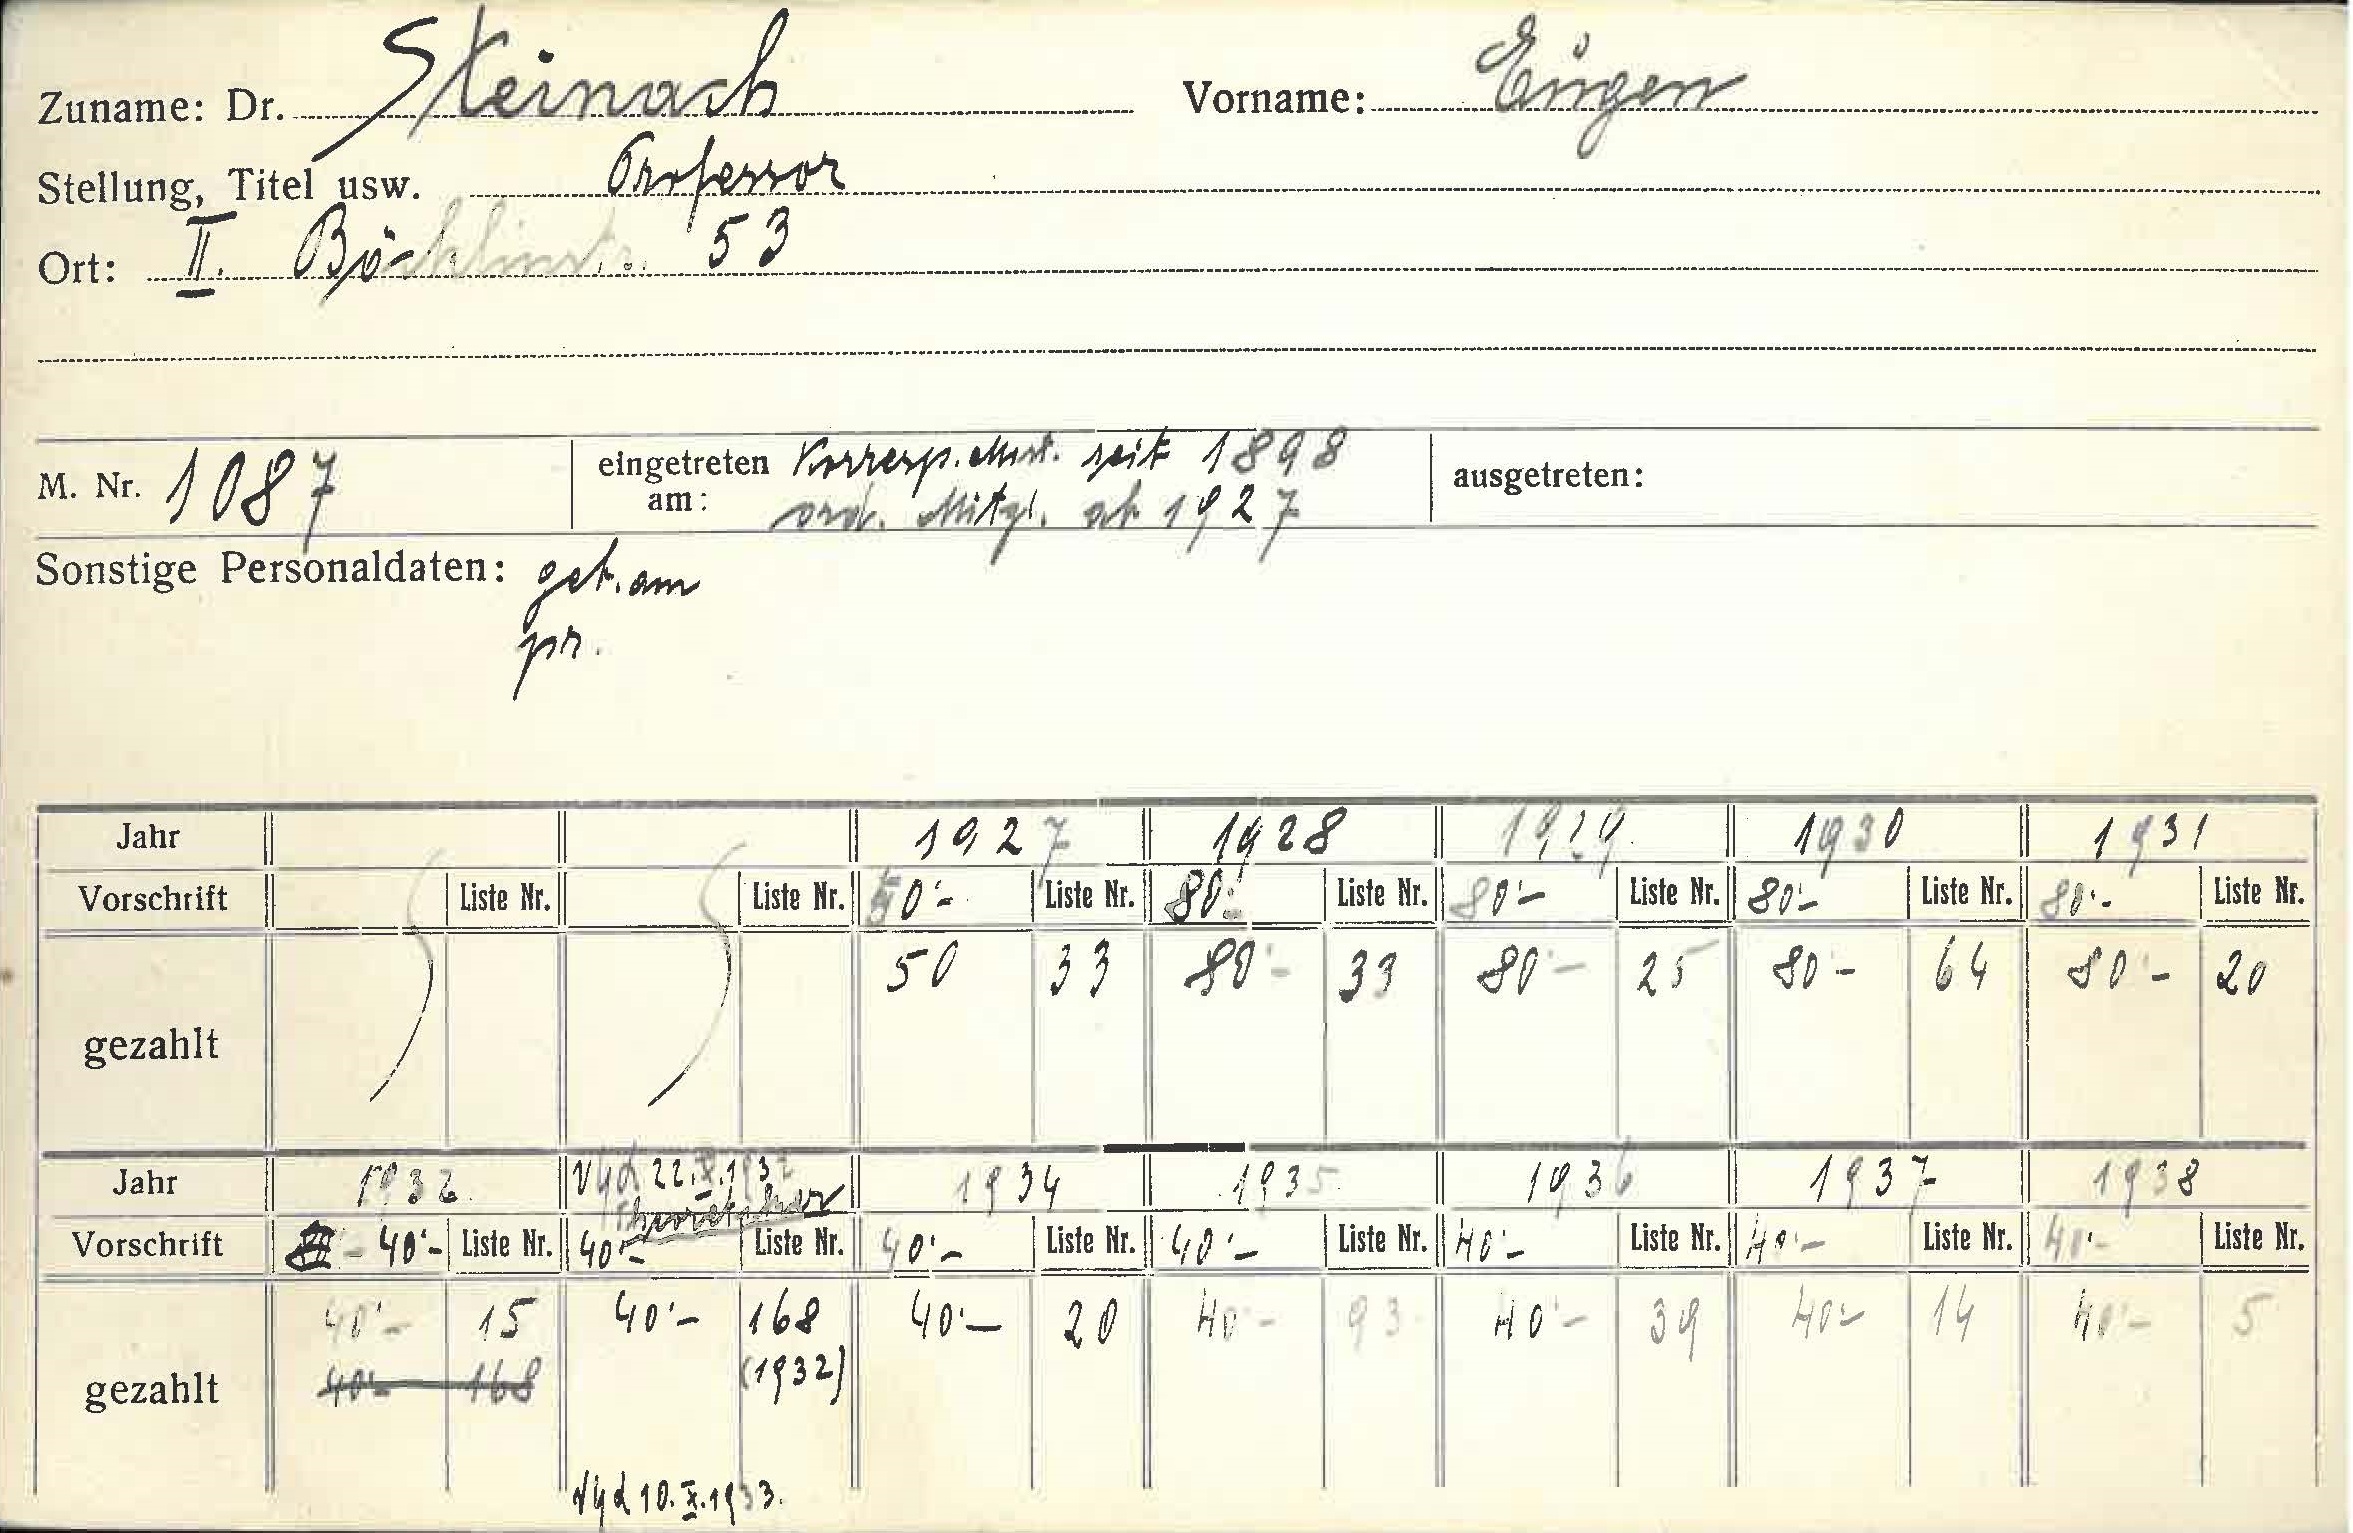 Zuname: Dr. Steinach Vorname: Eugen
Stellung, Titel usw. Professor
Ort: II. Böcklinstr. 53
M. Nr. 1087 eingetreten am: Korresp. Mit. seit 1898 ausgetreten:
ord. Mitgl. ab 1927
Sonstige Personaldaten: geb. am
pr.
Jahr 1927 1928 1929. 1930 1931
Vorschrift Liste Nr. Liste Nr. 50'- Liste Nr. 80'- Liste Nr. 80'- Liste Nr. 80'- Liste Nr. 80'- Liste Nr.
gezahlt 50 33 80'- 33 80'- 25 80- 64 80'- 20
Jahr 1932. 22.X.1932 1934 1935. 1936 1937 1938
Vorschrift 40'- Liste Nr. 40'- Liste Nr. 40'- Liste Nr. 40'- Liste Nr. 40'- Liste Nr. 40'- Liste Nr. 40'- Liste Nr.
gezahlt 40'- 15 40'- 168 40'- 20 40'- 93 40'- 39 40'- 14 40'- 5
40'- 168 (1932)
10.X.1933.